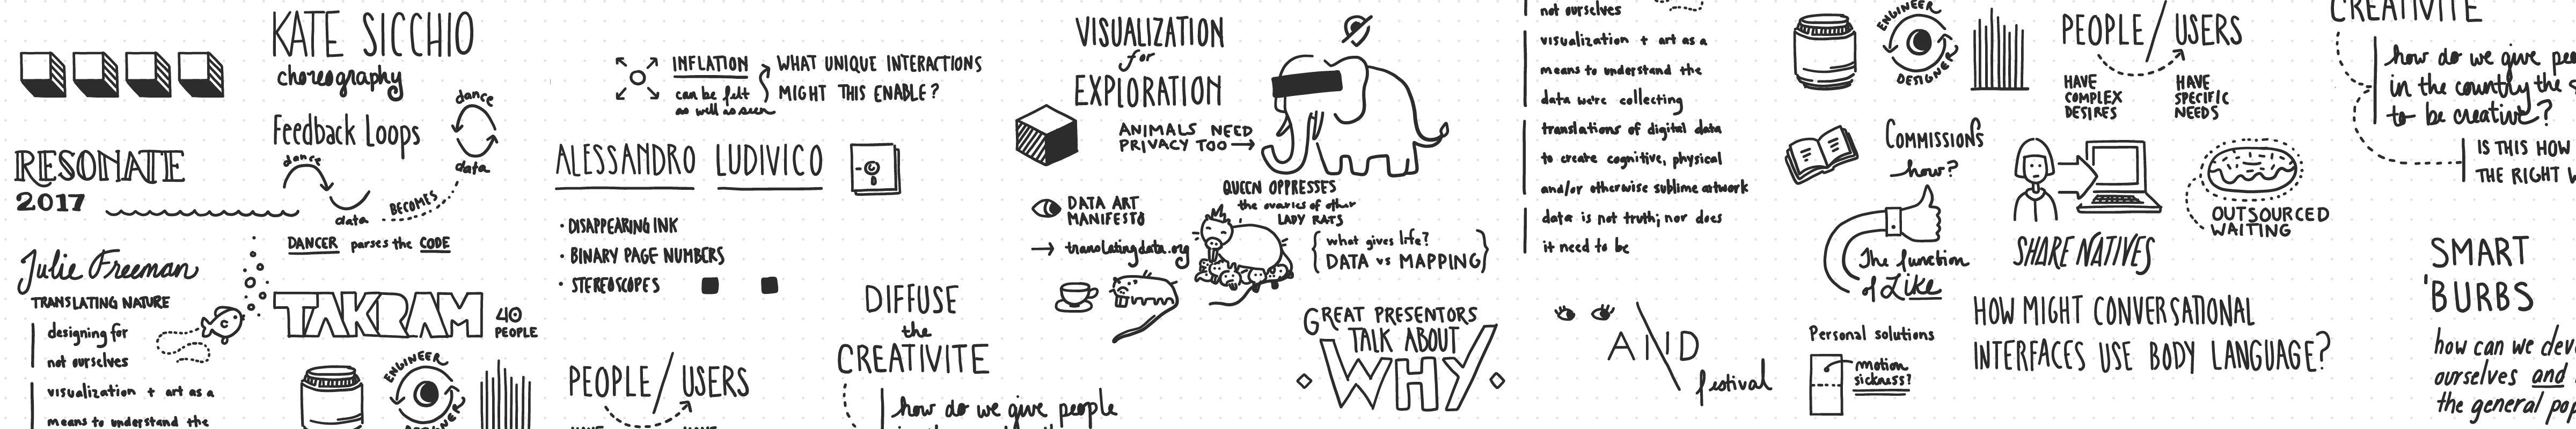 RESONATE
2017
Julie Freeman
TRANSLATING NATURE
designing for
not ourselves
visualization + art as a
means to understand the
KATE SICCHIO
choreography
Feedback Loops
dance
data
dance
data
BECOMES
DANCER parses the CODE
TAKRAM
40
PEOPLE
ENGINEER
INFLATION
can be felt
as well as seen
WHAT UNIQUE INTERACTIONS
MIGHT THIS ENABLE?
ALESSANDRO LUDIVICO
• DISAPPEARING INK
• BINARY PAGE NUMBERS
• STEREOSCOPES
PEOPLE/USERS
DIFFUSE
the
CREATIVITE
how do we give people
VISUALIZATION
for
EXPLORATION
ANIMALS NEED
PRIVACY TOO →
DATA ART
MANIFESTO
→ translatingdata.org
QUEEN OPPRESSES
the ovaries of other
LADY RATS
{what gives life?
DATA vs MAPPING}
GREAT PRESENTORS
TALK ABOUT
WHY
not ourselves
visualization + art as a
means to understand the
data we're collecting
translations of digital data
to create cognitive, physical
and/or otherwise sublime artwork
data is not truth; nor does
it need to be
AND
festival
ENGINEER
DESIGNER
COMMISSIONS
how?
The function
of Like
Personal solutions
motion
sickness?
PEOPLE/USERS
HAVE
COMPLEX
DESIRES
HAVE
SPECIFIC
NEEDS
SHARE NATIVES
OUTSOURCED
WAITING
HOW MIGHT CONVERSATIONAL
INTERFACES USE BODY LANGUAGE?
CREATIVITE
how do we give
in the country the
to be creative?
IS THIS HOW
THE RIGHT
SMART
'BURBS
how can we
ourselves and
the general